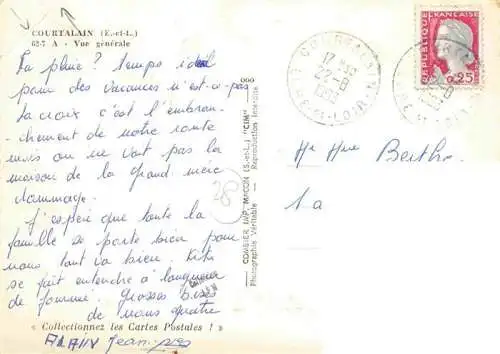 COURTALAIN (E.-et-L.)
62-7 A - Vue générale
La pluie? temps idéal
pour des vacances n'est-ce pas
la croix c'est l'embran-
chement de notre route
mais on ne voit pas la
maison de la grand mère
dommage.
J'espère que toute la
famille se porte bien pour
nous tout va bien.
se fait entendre à longueur
de journée. Grosses bises
de nous quatre
ALAIN Jean-yves
« Collectionnez les Cartes Postales ! »
28
COMBIER IMP. MACON (S.-et-L.) "CIM"
Photographie Véritable - Reproduction Interdite
COURTALAIN
22-8
EURE-ET-LOIR
REPUBLIQUE FRANCAISE
0,25
POSTES
Mr Mme